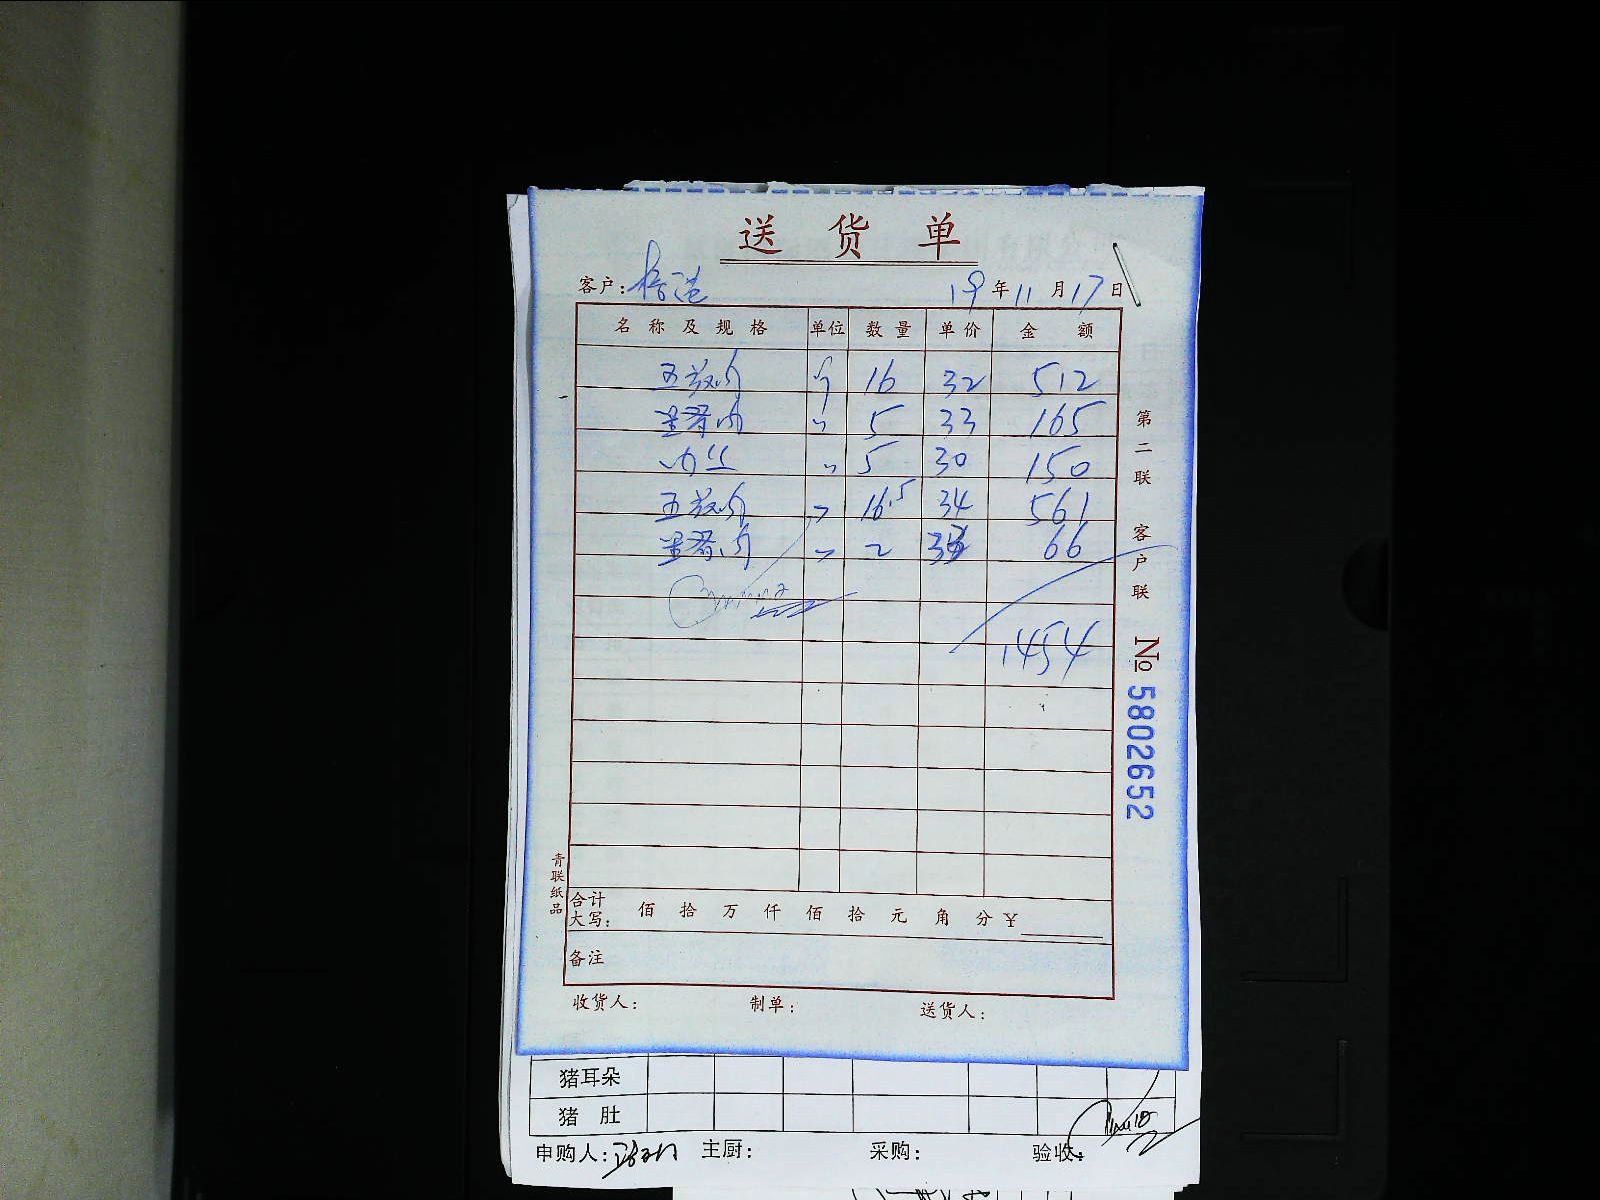 送 货 单
客户: 19年11月17日
名称及规格 单位 数量 单价 金额
五花肉 斤 16 32 512
里脊肉 〃 5 33 165
肉丝 〃 5 30 150
五花肉 〃 16.5 34 561
里脊肉 〃 2 33 66
1454
第二联 客户联
№ 5802652
青联纸品
合计大写: 佰 拾 万 仟 佰 拾 元 角 分 ¥
备注
收货人: 制单: 送货人:
猪耳朵
猪 肚
申购人: 主厨: 采购: 验收: